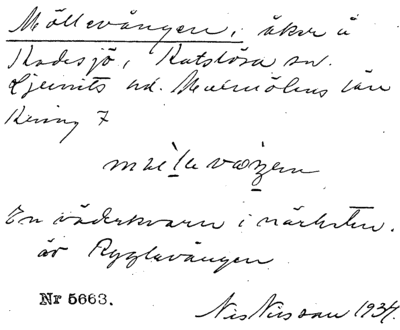 Möllevången, åker å
Kadesjö, Katslösa sn.
Ljunits hd. Malmöhus län
Kering 7
En väderkvarn i närheten.
är Rygelavången
Nr 5663.
Nils Nilsson 1934.